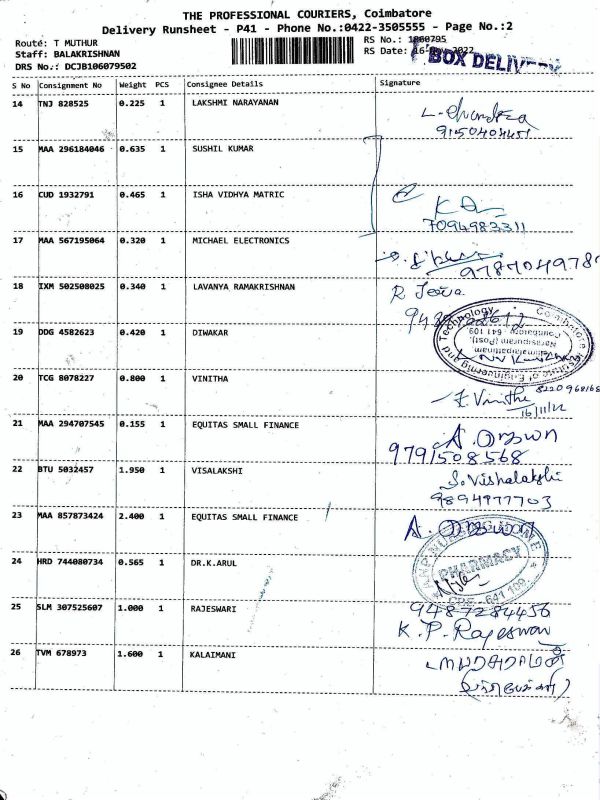 THE PROFESSIONAL COURIERS, Coimbatore
Delivery Runsheet - P41 - Phone No.:0422-3505555 - Page No.:2
Route: T MUTHUR
RS No.: 1060795
Staff: BALAKRISHNAN
RS Date: 16-Nov-2022
DRS No.: DCJB106079502
BOX DELIVERY
S No Consignment No Weight PCS Consignee Details Signature
14 TNJ 828525 0.225 1 LAKSHMI NARAYANAN
9150404451
15 MAA 296184046 0.635 1 SUSHIL KUMAR
16 CUD 1932791 0.465 1 ISHA VIDHYA MATRIC
7094983311
17 MAA 567195064 0.320 1 MICHAEL ELECTRONICS
18 IXM 502508025 0.340 1 LAVANYA RAMAKRISHNAN
R Jeeva
19 DDG 4582623 0.420 1 DIWAKAR
20 TCG 8078227 0.800 1 VINITHA
Vinitha
16/11/22
21 MAA 294707545 0.155 1 EQUITAS SMALL FINANCE
9791508568
22 BTU 5032457 1.950 1 VISALAKSHI
S. Vishalakshi
9894977703
23 MAA 857873424 2.400 1 EQUITAS SMALL FINANCE
24 HRD 744080734 0.565 1 DR.K.ARUL
PHARMACY
CBE - 641 109
25 SLM 307525607 1.000 1 RAJESWARI
9487284456
K. P. Rajeswari
26 TVM 678973 1.600 1 KALAIMANI